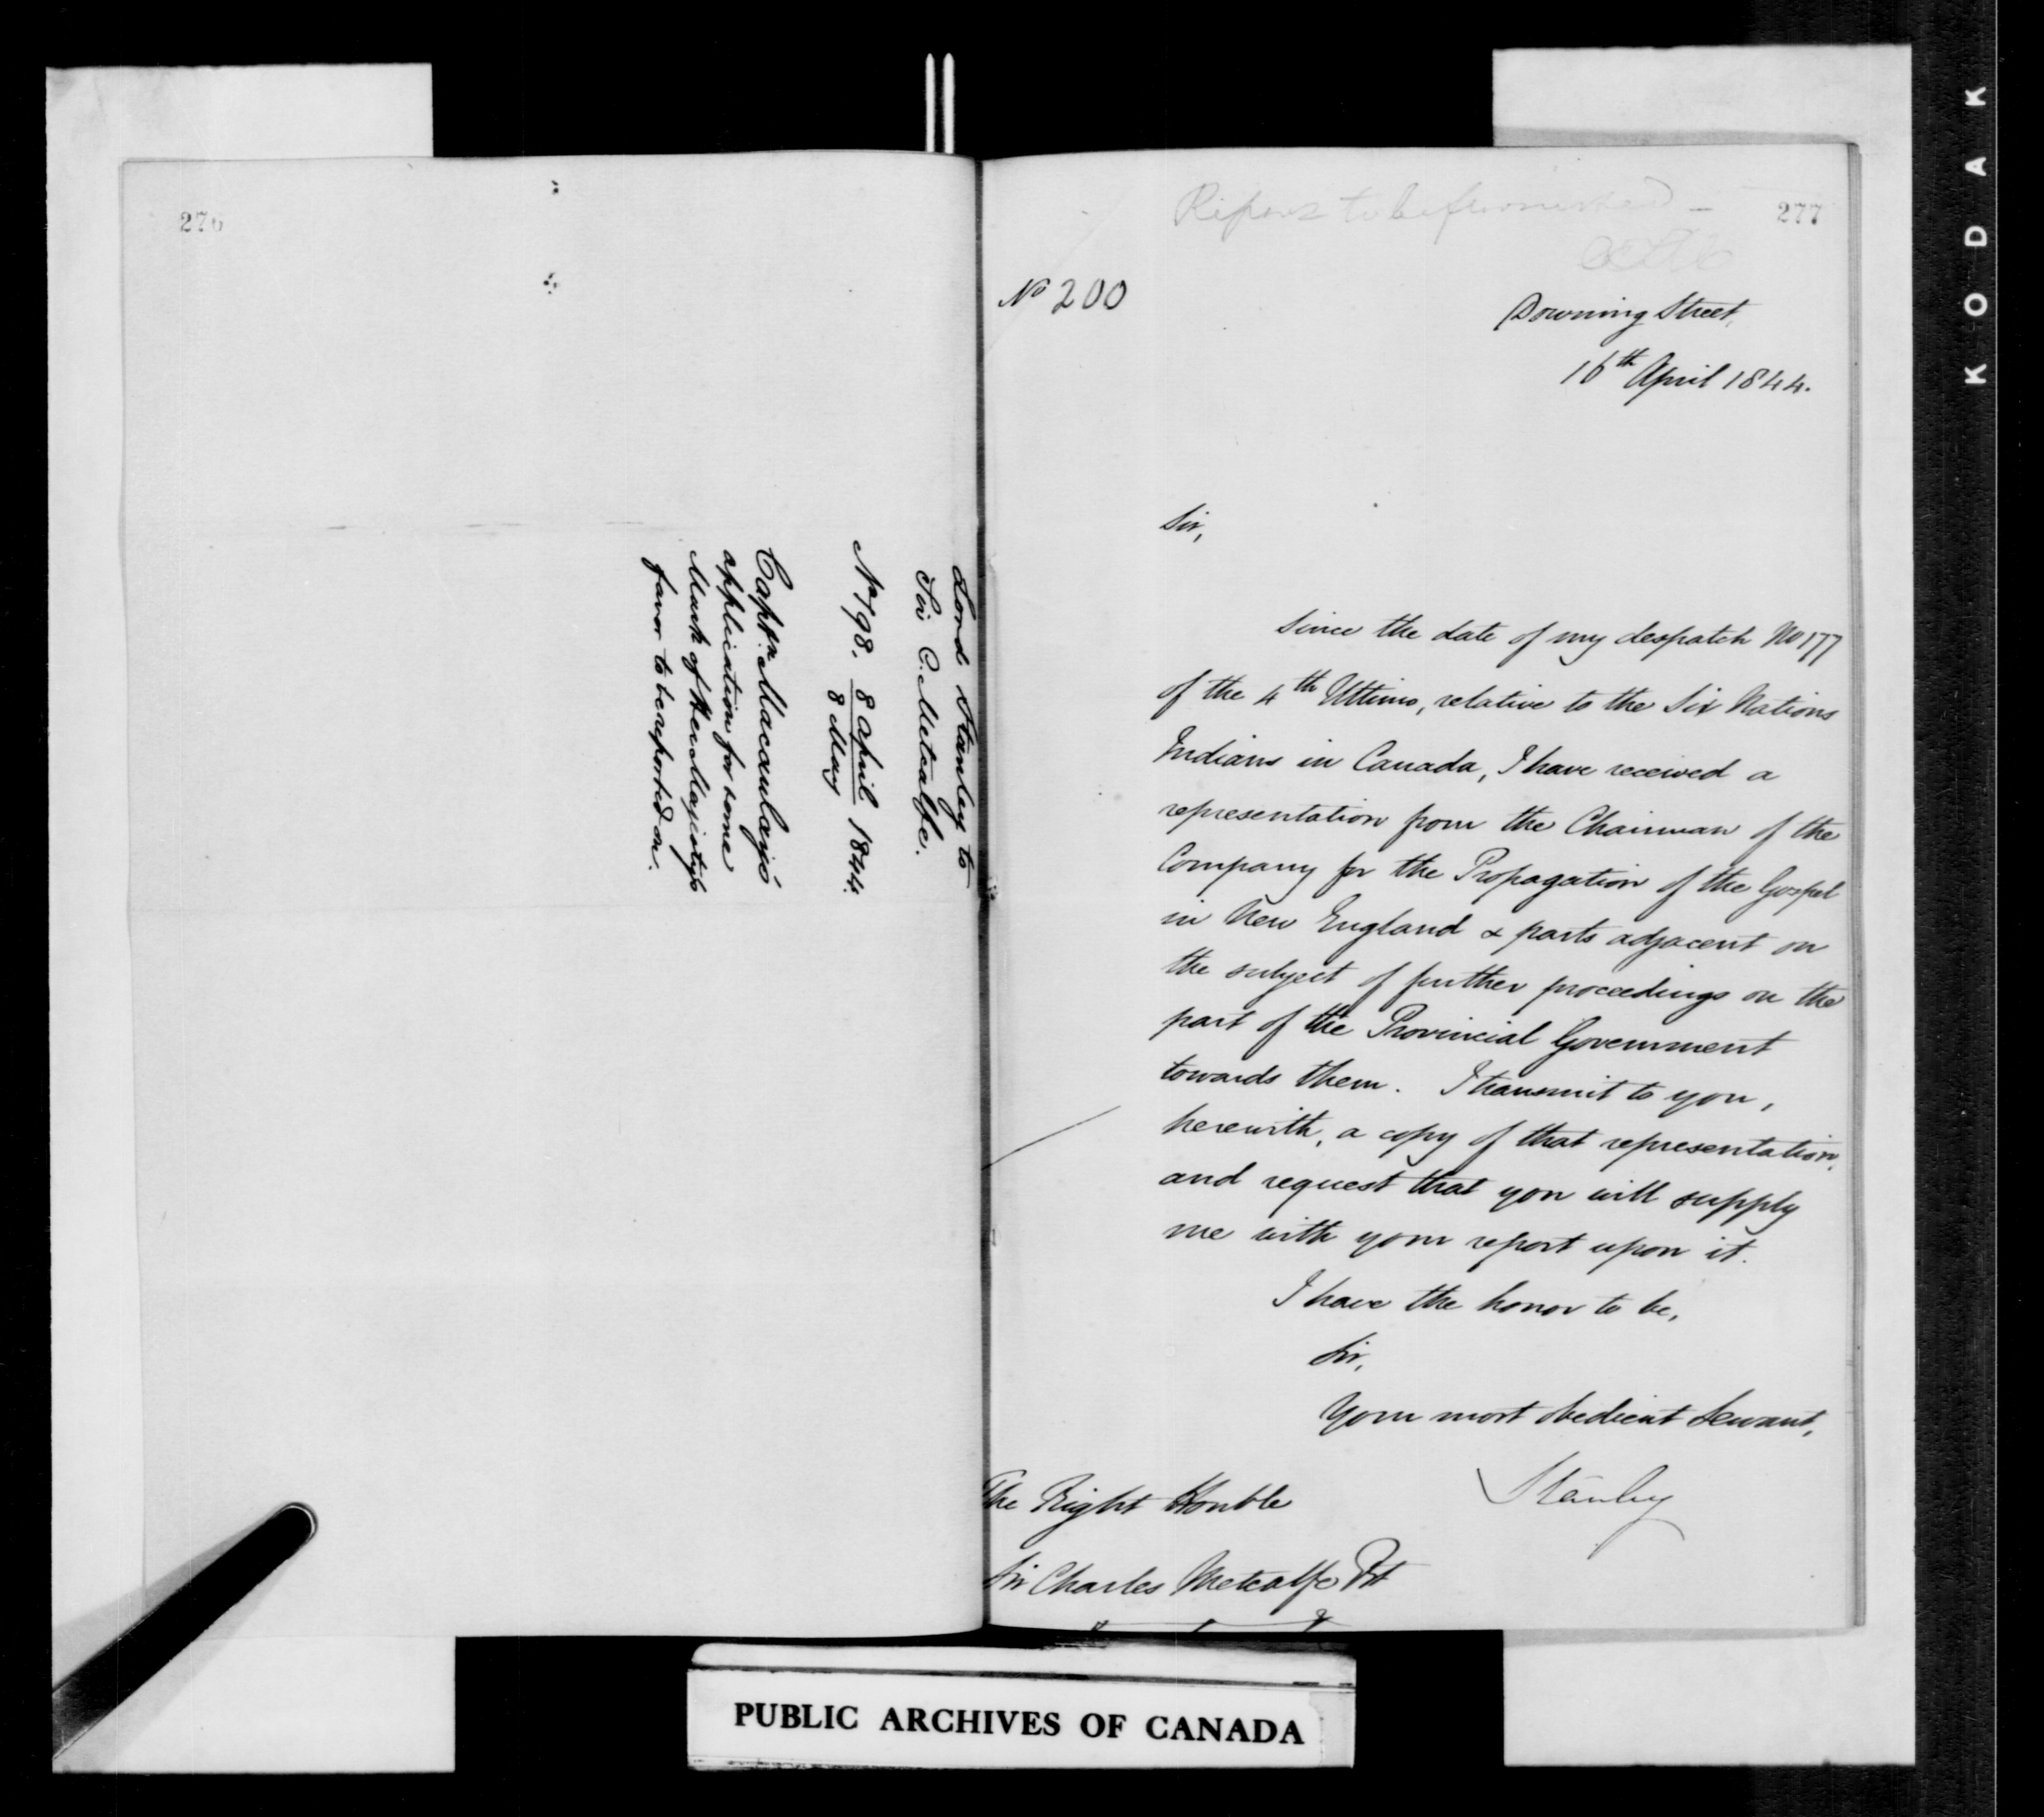 276
Lord Stanley to
Sir C. Metcalfe.
No 198. 8 April 1844.
8 May
Captn. Macaulay's
application for some
Mark of Her Majesty's
favor to be reported on.
Report to be furnished —
277
No 200
Downing Street,
16th April 1844.
Sir,
Since the date of my despatch No 177
of the 4th Ultimo, relative to the Six Nations
Indians in Canada, I have received a
representation from the Chairman of the
Company for the Propagation of the Gospel
in New England & parts adjacent on
the subject of further proceedings on the
part of the Provincial Government
towards them. I transmit to you,
herewith, a copy of that representation,
and request that you will supply
me with your report upon it.
I have the honor to be,
Sir,
Your most obedient Servant,
Stanley
The Right Honble
Sir Charles Metcalfe Bt
PUBLIC ARCHIVES OF CANADA
KODAK